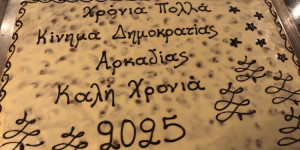 Χρόνια Πολλά
Κίνημα Δημοκρατίας
Αρκαδίας
Καλή Χρονιά
2025